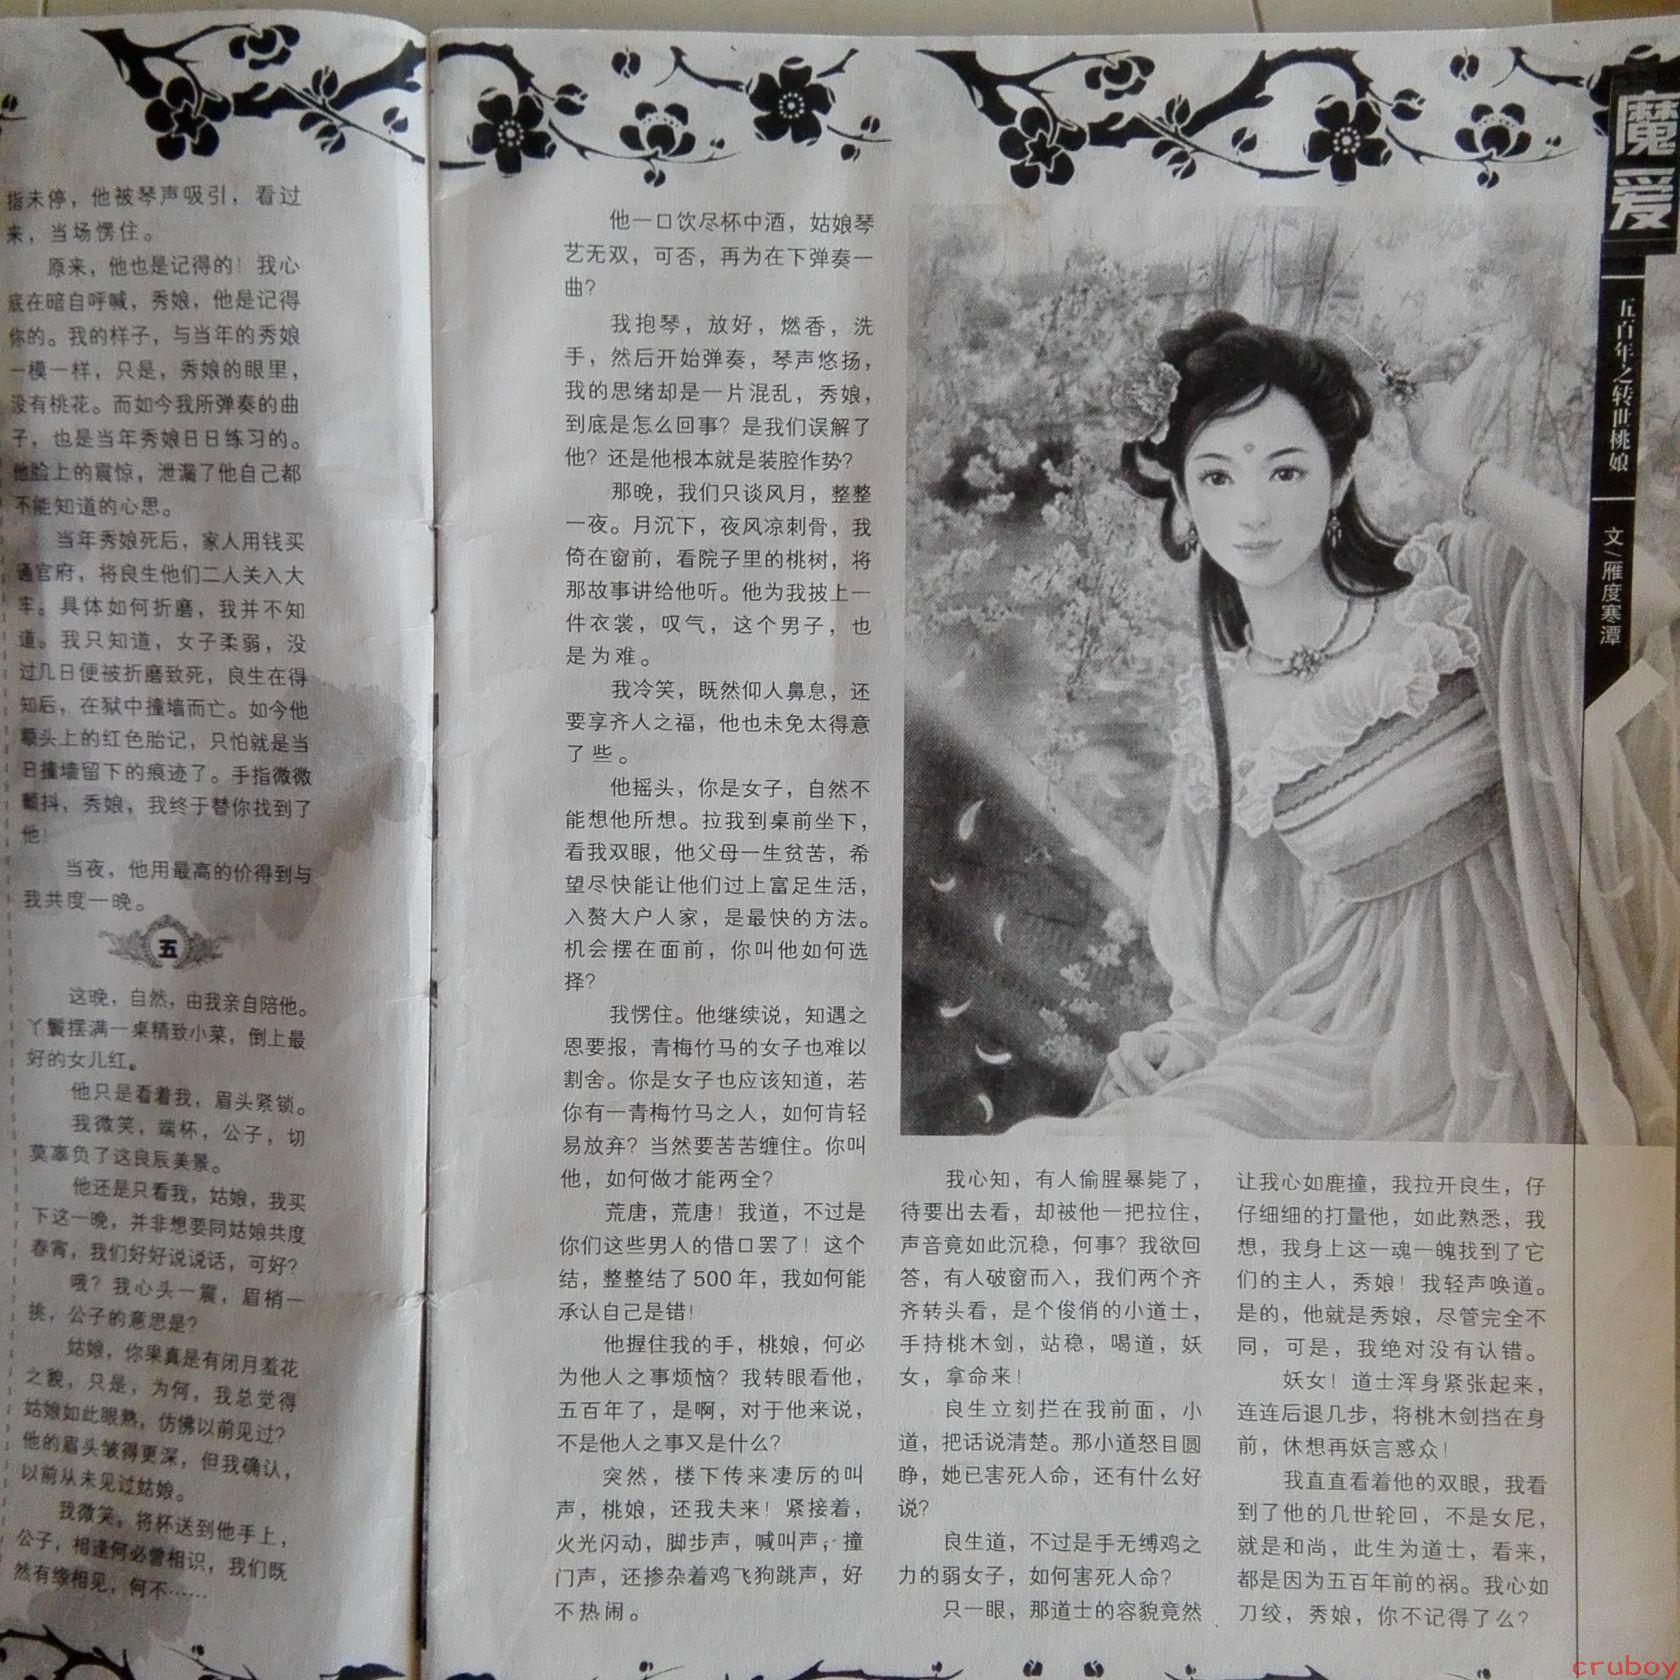 指未停，他被琴声吸引，看过
来，当场愣住。
原来，他也是记得的！我心
底在暗自呼喊，秀娘，他是记得
你的。我的样子，与当年的秀娘
一模一样，只是，秀娘的眼里，
没有桃花。而如今我所弹奏的曲
子，也是当年秀娘日日练习的。
他脸上的震惊，泄漏了他自己都
不能知道的心思。
当年秀娘死后，家人用钱买
通官府，将良生他们二人关入大
牢。具体如何折磨，我并不知
道。我只知道，女子柔弱，没
过几日便被折磨致死，良生在得
知后，在狱中撞墙而亡。如今他
额头上的红色胎记，只怕就是当
日撞墙留下的痕迹了。手指微微
颤抖，秀娘，我终于替你找到了
他！
当夜，他用最高的价得到与
我共度一晚。
五
这晚，自然，由我亲自陪他。
丫鬟摆满一桌精致小菜，倒上最
好的女儿红。
他只是看着我，眉头紧锁。
我微笑，端杯，公子，切
莫辜负了这良辰美景。
他还是只看我，姑娘，我买
下这一晚，并非想要同姑娘共度
春宵，我们好好说说话，可好？
哦？我心头一震，眉梢一
挑，公子的意思是？
姑娘，你果真是有闭月羞花
之貌，只是，为何，我总觉得
姑娘如此眼熟，仿佛以前见过？
他的眉头皱得更深，但我确认，
以前从未见过姑娘。
我微笑，将杯送到他手上，
公子，相逢何必曾相识，我们既
然有缘相见，何不……
他一口饮尽杯中酒，姑娘琴
艺无双，可否，再为在下弹奏一
曲？
我抱琴，放好，燃香，洗
手，然后开始弹奏，琴声悠扬，
我的思绪却是一片混乱，秀娘，
到底是怎么回事？是我们误解了
他？还是他根本就是装腔作势？
那晚，我们只谈风月，整整
一夜。月沉下，夜风凉刺骨，我
倚在窗前，看院子里的桃树，将
那故事讲给他听。他为我披上一
件衣裳，叹气，这个男子，也
是为难。
我冷笑，既然仰人鼻息，还
要享齐人之福，他也未免太得意
了些。
他摇头，你是女子，自然不
能想他所想。拉我到桌前坐下，
看我双眼，他父母一生贫苦，希
望尽快能让他们过上富足生活，
入赘大户人家，是最快的方法。
机会摆在面前，你叫他如何选
择？
我愣住。他继续说，知遇之
恩要报，青梅竹马的女子也难以
割舍。你是女子也应该知道，若
你有一青梅竹马之人，如何肯轻
易放弃？当然要苦苦缠住。你叫
他，如何做才能两全？
荒唐，荒唐！我道，不过是
你们这些男人的借口罢了！这个
结，整整结了500年，我如何能
承认自己是错！
他握住我的手，桃娘，何必
为他人之事烦恼？我转眼看他，
五百年了，是啊，对于他来说，
不是他人之事又是什么？
突然，楼下传来凄厉的叫
声，桃娘，还我夫来！紧接着，
火光闪动，脚步声，喊叫声，撞
门声，还掺杂着鸡飞狗跳声，好
不热闹。
我心知，有人偷腥暴毙了，
待要出去看，却被他一把拉住，
声音竟如此沉稳，何事？我欲回
答，有人破窗而入，我们两个齐
齐转头看，是个俊俏的小道士，
手持桃木剑，站稳，喝道，妖
女，拿命来！
良生立刻拦在我前面，小
道，把话说清楚。那小道怒目圆
睁，她已害死人命，还有什么好
说？
良生道，不过是手无缚鸡之
力的弱女子，如何害死人命？
只一眼，那道士的容貌竟然
让我心如鹿撞，我拉开良生，仔
仔细细的打量他，如此熟悉，我
想，我身上这一魂一魄找到了它
们的主人，秀娘！我轻声唤道。
是的，他就是秀娘，尽管完全不
同，可是，我绝对没有认错。
妖女！道士浑身紧张起来，
连连后退几步，将桃木剑挡在身
前，休想再妖言惑众！
我直直看着他的双眼，我看
到了他的几世轮回，不是女尼，
就是和尚，此生为道士，看来，
都是因为五百年前的祸。我心如
刀绞，秀娘，你不记得了么？
魔爱
五百年之转世桃娘
文/雁度寒潭
cruboy